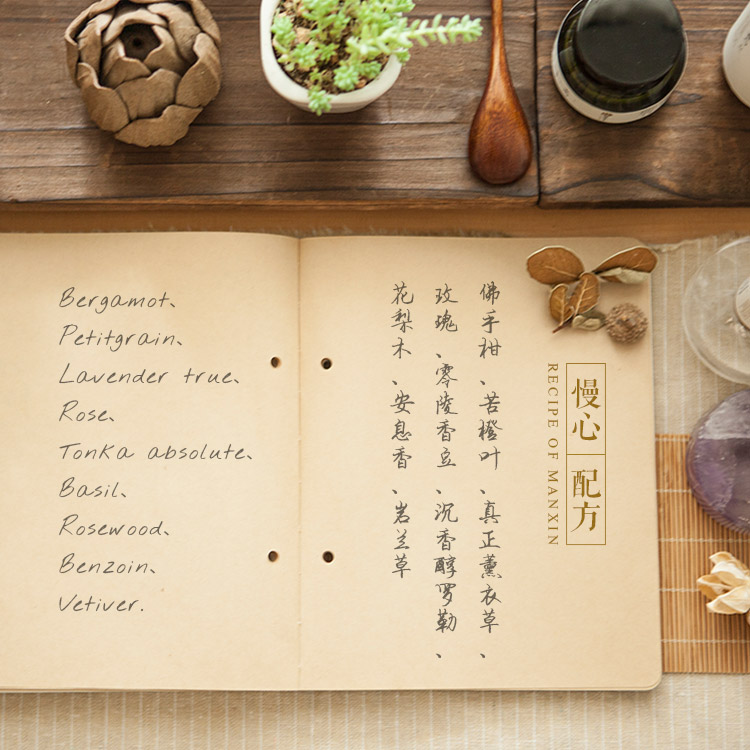 Bergamot、
Petitgrain、
Lavender true、
Rose、
Tonka absolute、
Basil、
Rosewood、
Benzoin、
Vetiver.
慢心 配方
RECIPE OF MANXIN
佛手柑、苦橙叶、真正薰衣草、
玫瑰、零陵香豆、沉香醇罗勒、
花梨木、安息香、岩兰草